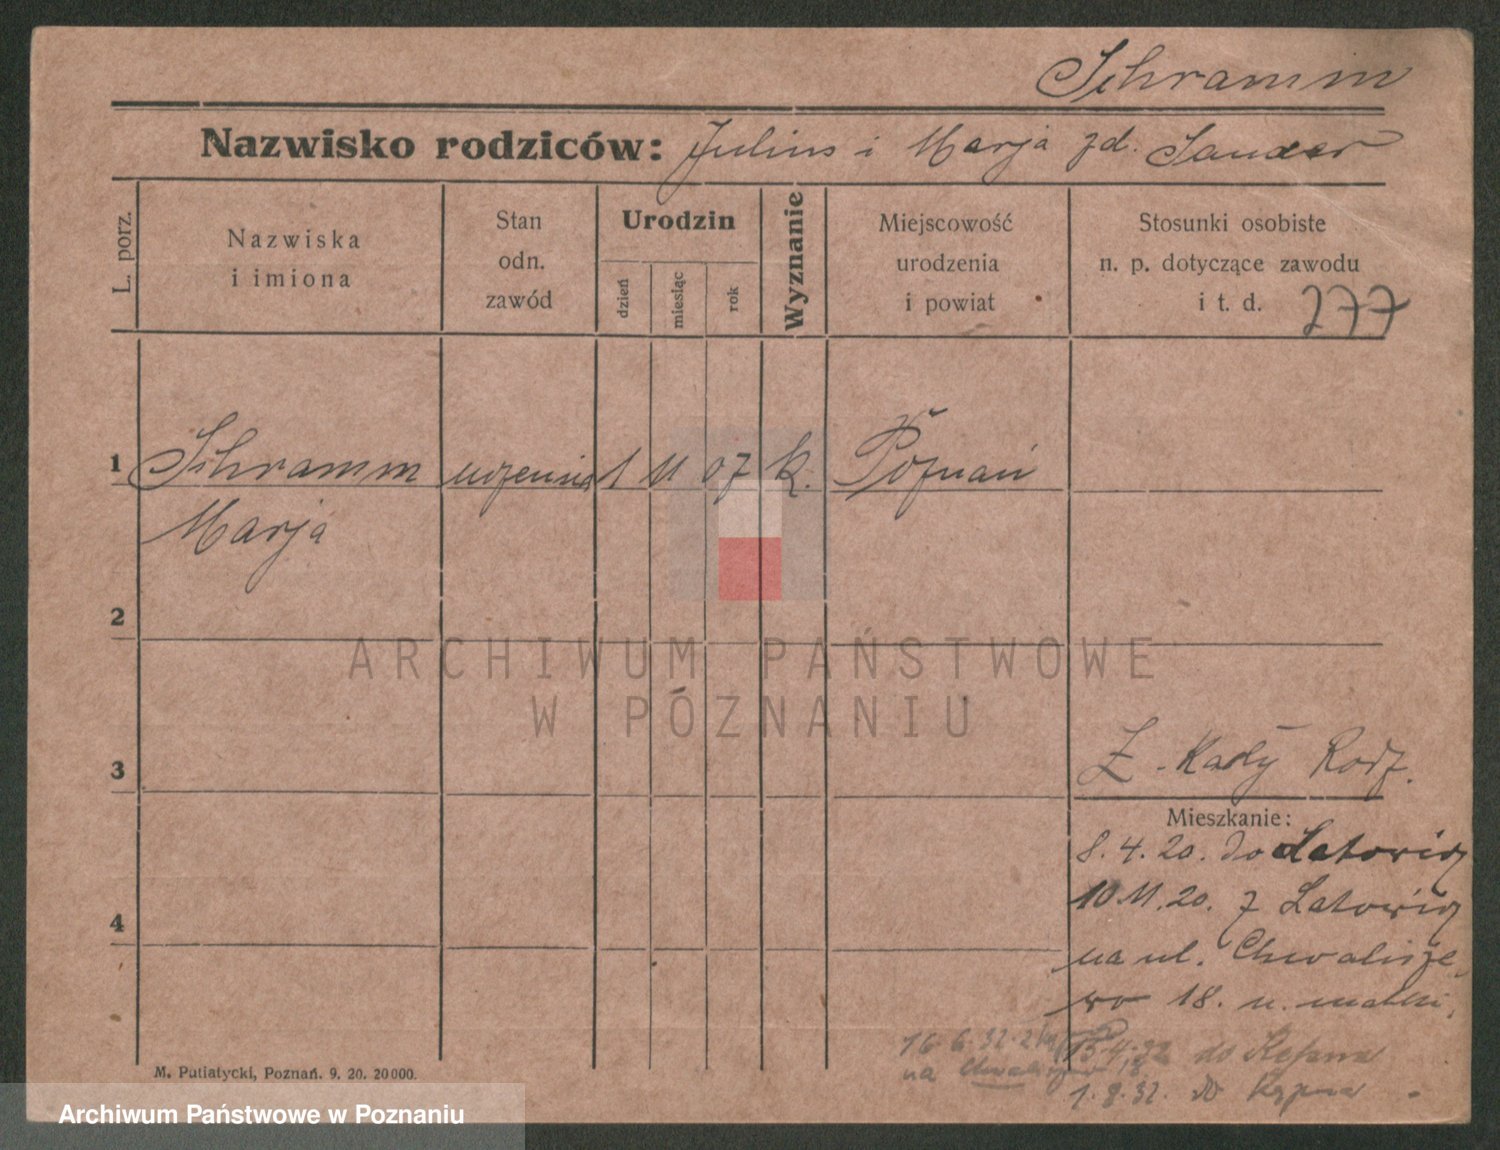 Schramm
Nazwisko rodziców: Julius i Marja zd. Sander
L. porz.
Nazwiska
i imiona
Stan
odn.
zawód
Urodzin
dzień
miesiąc
rok
Wyznanie
Miejscowość
urodzenia
i powiat
Stosunki osobiste
n. p. dotyczące zawodu
i t. d. 277
1 Schramm uczenica 1 11 07 k. Poznań
Marja
2
ARCHIWUM PAŃSTWOWE
W POZNANIU
3
Z. Rodz.
Mieszkanie:
8. 4. 20. do Latowicy
4
10 11. 20. z Latowicy
na ul. Chwalisze
wo 18. u. matki.
16 6. 32. z
13.4.32 do Kępna
na Chwaliszewo 18.
1. 8. 32. do Kępna
M. Putiatycki, Poznań. 9. 20. 20000.
Archiwum Państwowe w Poznaniu